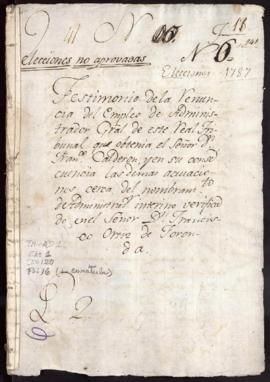 N
elecciones no aprovadas
N 6
Elecciones 1787
Testimonio de la Renun
cia del Empleo de Adminis
trador Gral de este Real Tri
bunal que obtenia el Señor Dn
Franco Calderon, y en su conse
cuencia las demas actuacio
nes cerca del nombramto
de Administrador interino verifica
do en el Señor Dn Francis
co Ortiz de Foron
da.
TM-AD 1
16
L 2